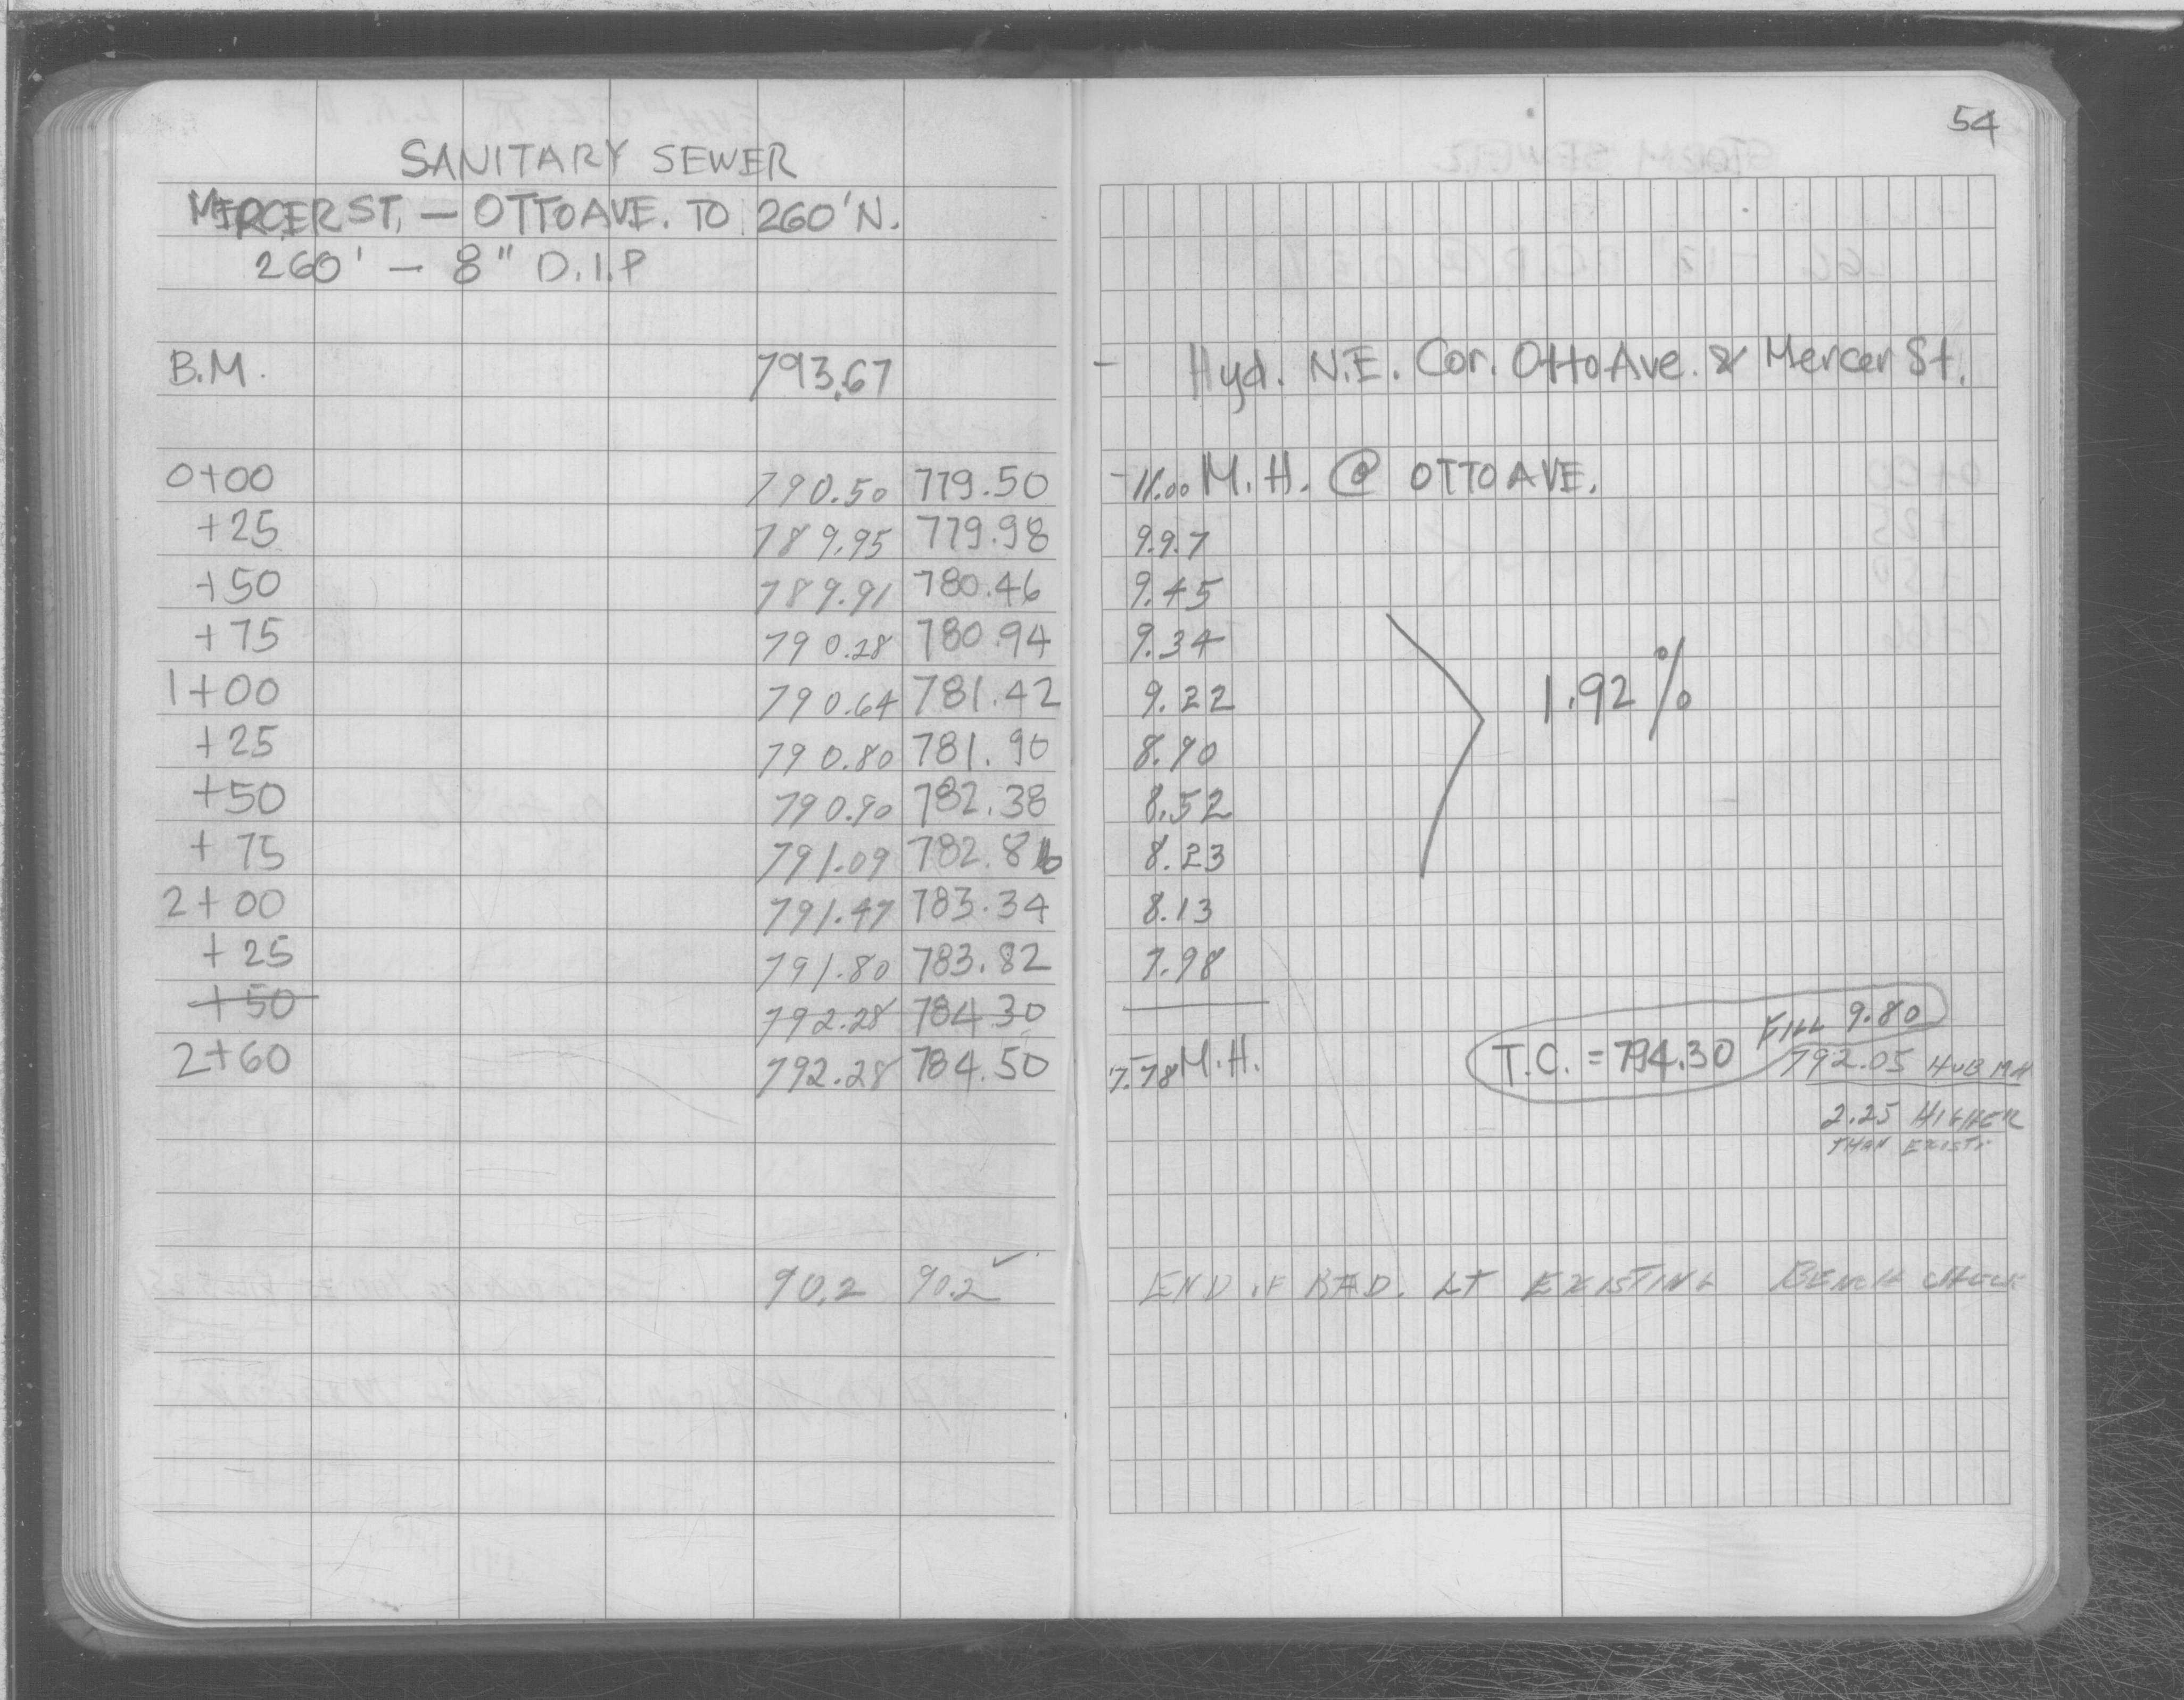 54
SANITARY SEWER
MERCER ST. — OTTO AVE. TO 260' N.
260' — 8" D.I.P
B.M. 793.67 - Hyd. N.E. Cor. Otto Ave. & Mercer St.
0+00 790.50 779.50 - 11.00 M.H. @ OTTO AVE.
+25 789.95 779.98 9.97
+50 789.91 780.46 9.45
+75 790.28 780.94 9.34
1+00 790.64 781.42 9.22 1.92%
+25 790.80 781.90 8.90
+50 790.90 782.38 8.52
+75 791.09 782.86 8.23
2+00 791.47 783.34 8.13
+25 791.80 783.82 7.98
+50 792.28 784.30 FILL 9.80
2+60 792.28 784.50 7.78 M.H. T.C. = 794.30 792.05 HUB MH
2.25 HIGHER
THAN EXIST.
90.2 90.2 ✓ END OF RAD. LT EXISTING BENCH CHECK